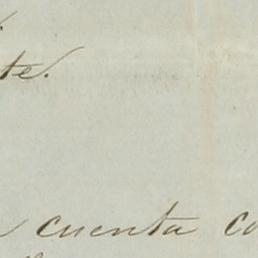 te.
cuenta co